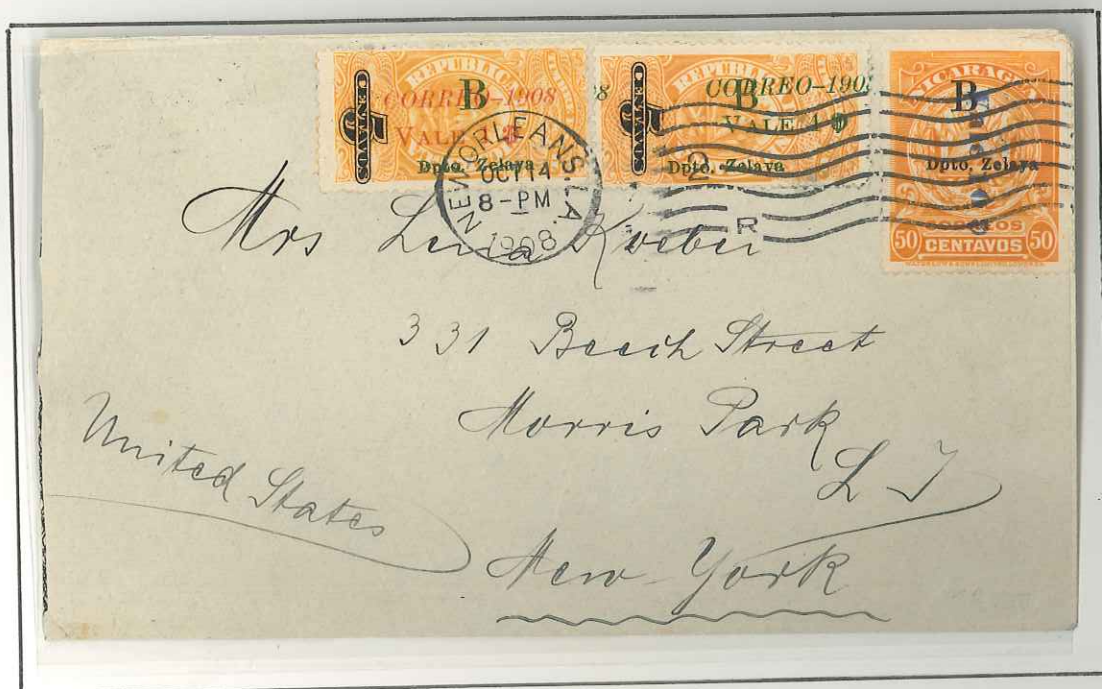 5 CENTAVOS REPUBLICA B
CORREO-1908
VALE
Dpto. Zelaya
8
CENTAVOS REPUBLICA B
CORREO-190
VALE
Dpto. Zelaya
NICARAGUA
B
Dpto. Zelaya
50 CENTAVOS 50
NEW ORLEANS, LA.
OCT 14
8-PM
1908
R
Mrs Lena Koeber
331 Beech Street
Morris Park
L I
United States
New York